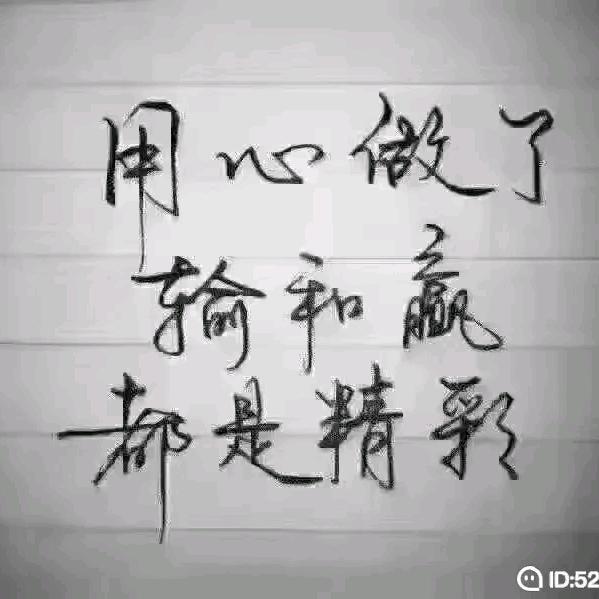 用心做了
输和赢
都是精彩
ID:52